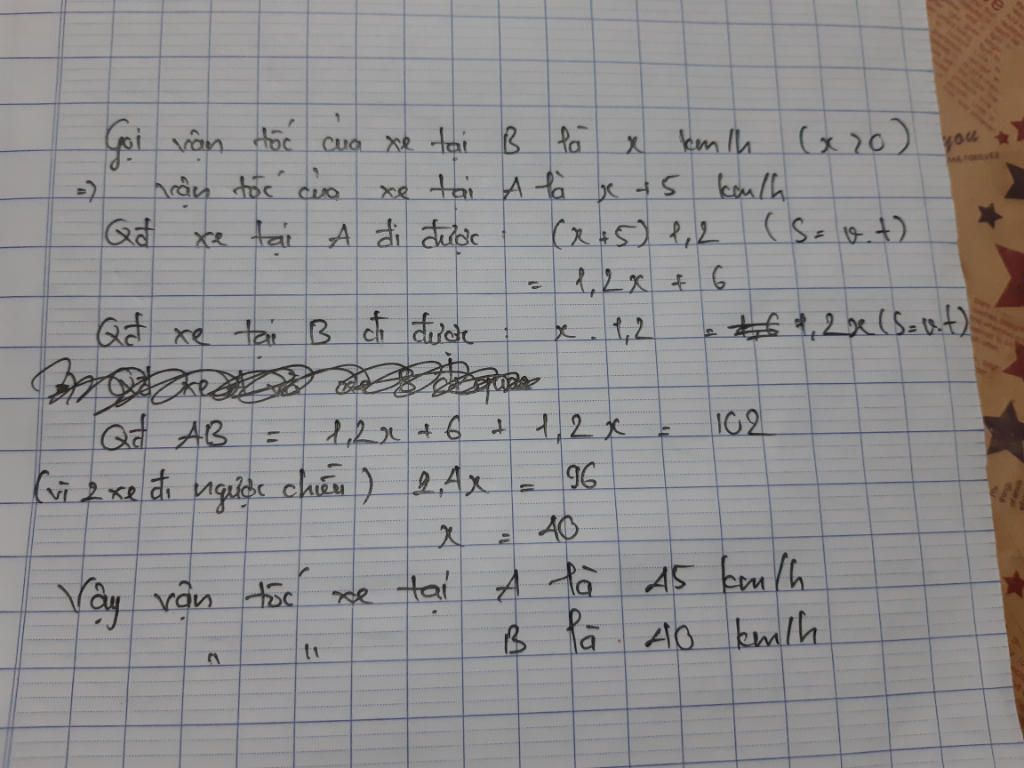 Gọi vận tốc của xe tại B là x km/h (x>0)
=> vận tốc của xe tại A là x + 5 km/h
Qđ xe tại A đi được : (x+5) 1,2 (S = v.t)
= 1,2x + 6
Qđ xe tại B đi được : x . 1,2 = 1,2x (S=v.t)
Qđ AB = 1,2x + 6 + 1,2x = 102
(vì 2 xe đi ngược chiều) 2,4x = 96
x = 40
Vậy vận tốc xe tại A là 45 km/h
" " B là 40 km/h
you